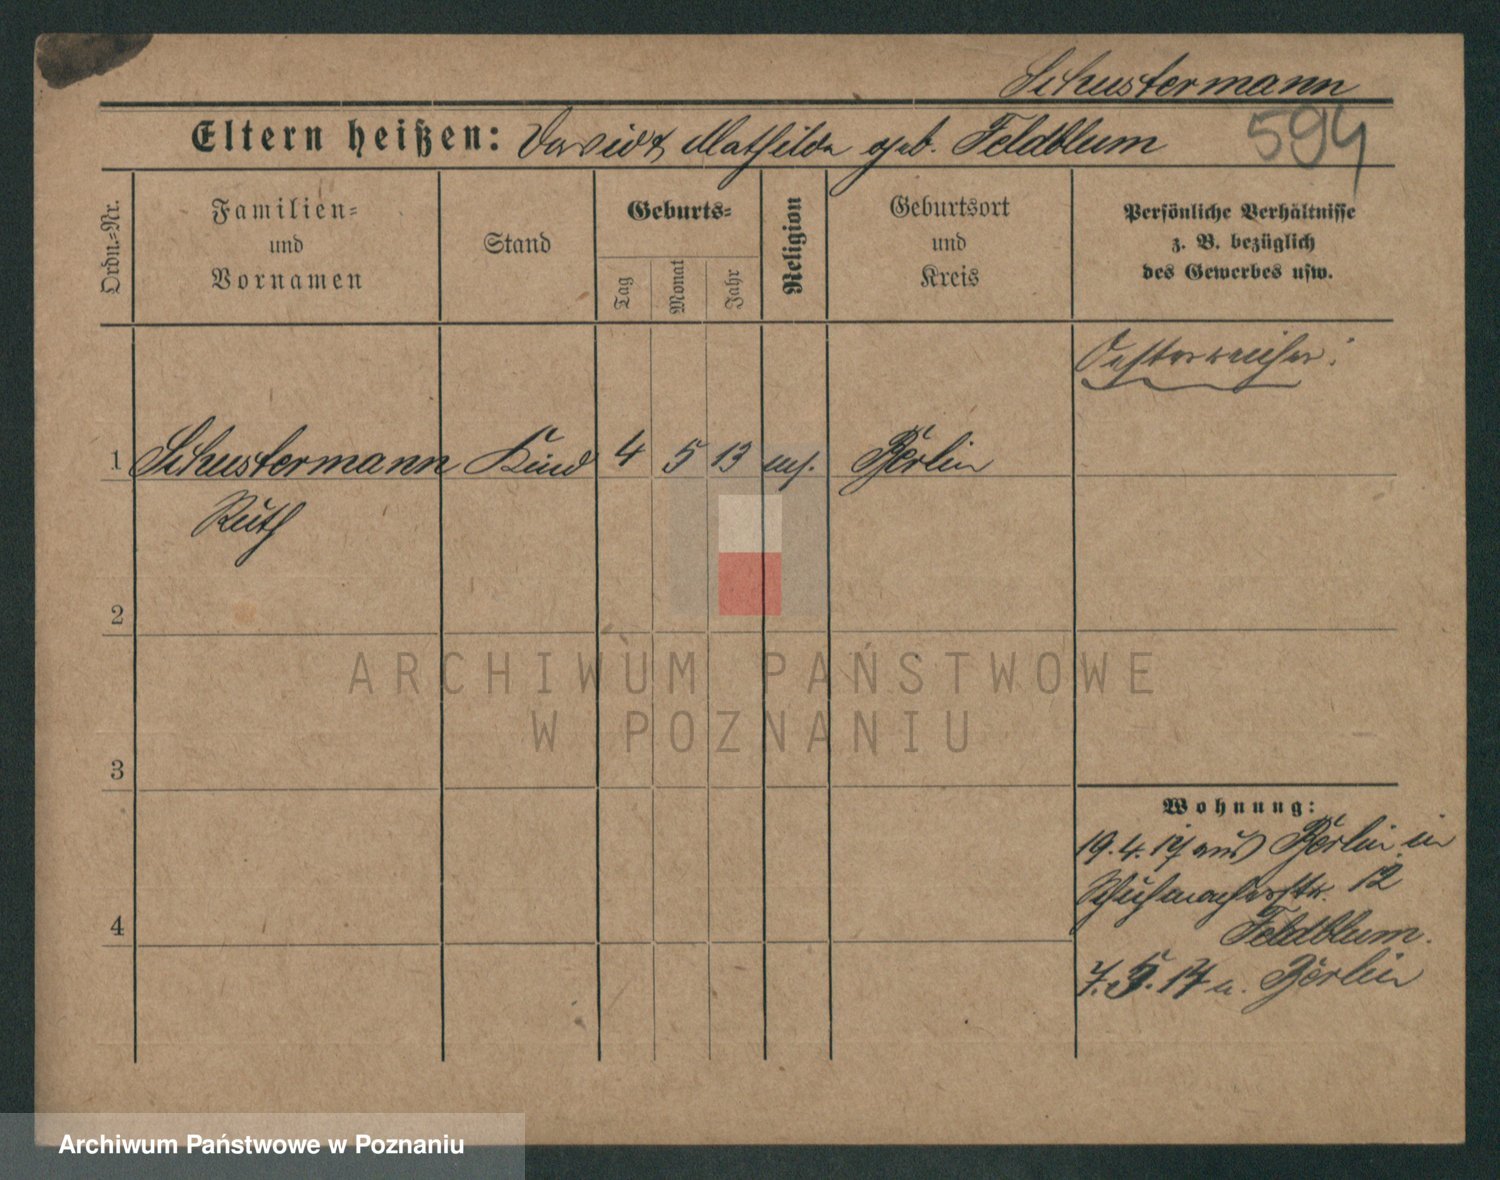 Schustermann
Eltern heißen: David & Mathilde geb. Feldblum
594
Ordn.=Nr.
Familien=
und
Vornamen
Stand
Geburts=
Tag
Monat
Jahr
Religion
Geburtsort
und
Kreis
Persönliche Verhältnisse
z. B. bezüglich
des Gewerbes usw.
Oesterreicher.
1 Schustermann Kind 4 5 13 Berlin
Ruth
2
3
4
Wohnung:
19. 4. 17 aus Berlin in
Schuhmacherstr. 12
Feldblum.
7. 5. 17 n. Berlin
ARCHIWUM PAŃSTWOWE
W POZNANIU
Archiwum Państwowe w Poznaniu